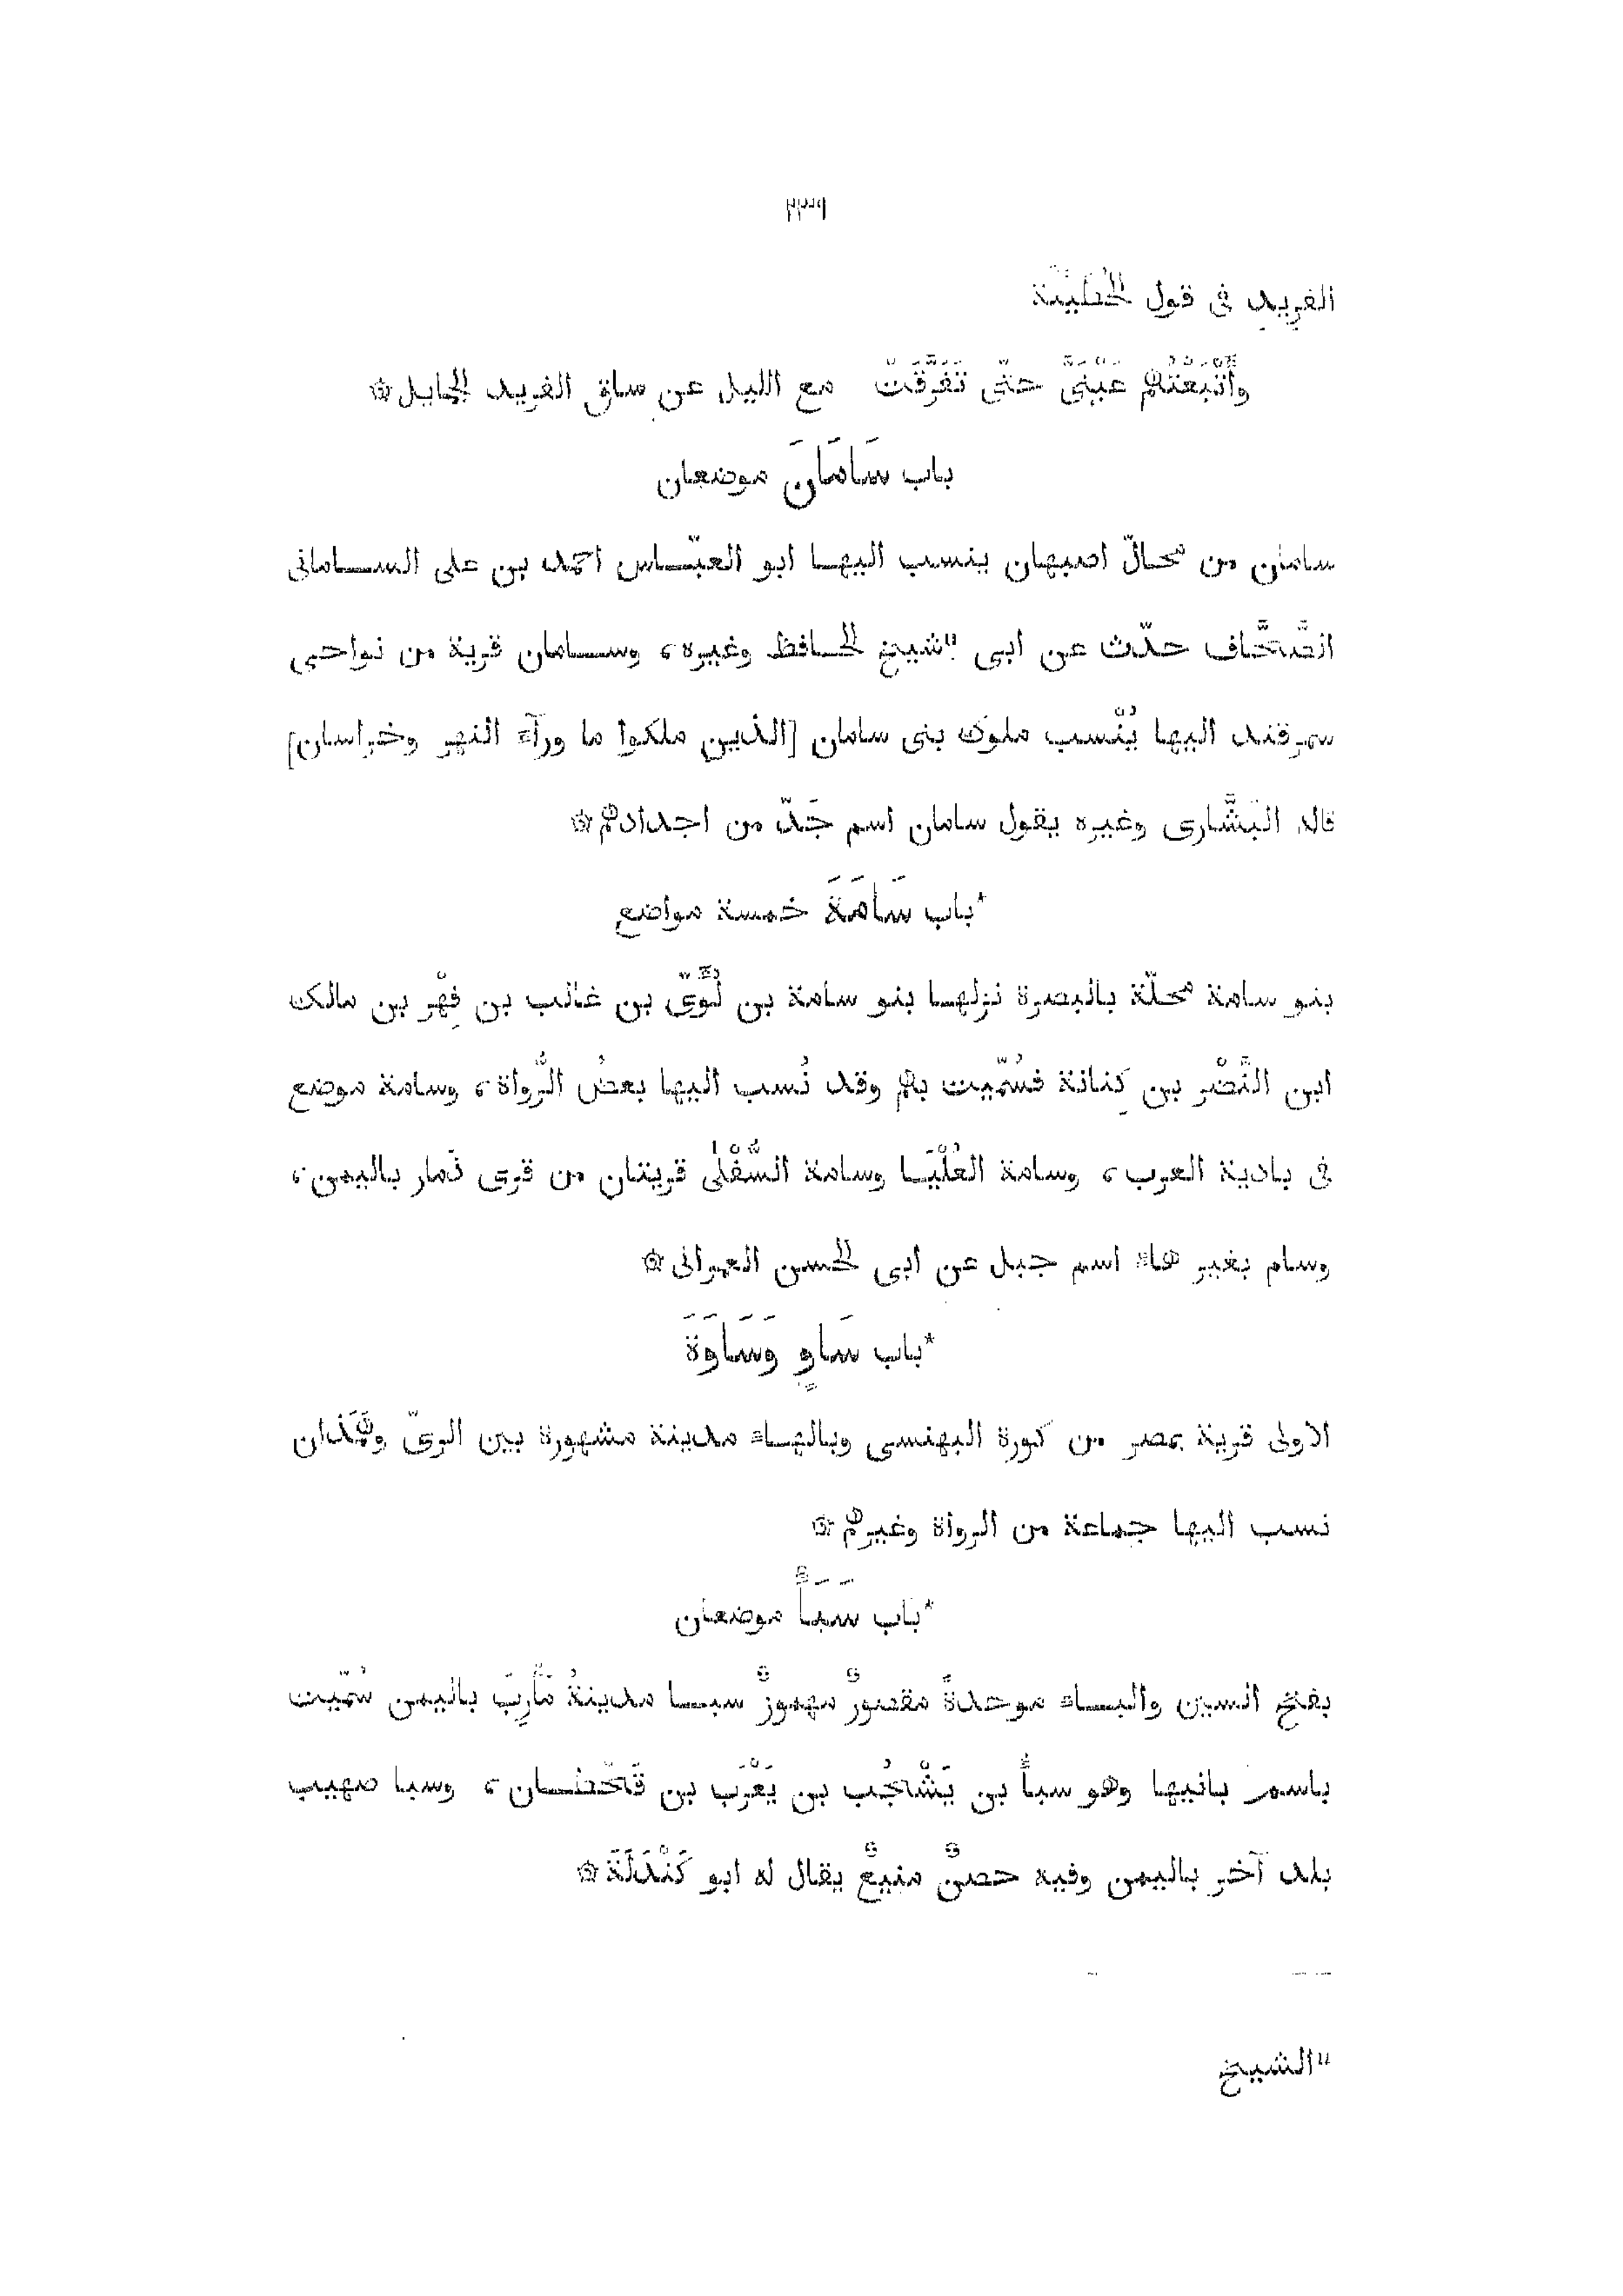 ٢٣٩
الفريد فى قول الحُطَيْئة
وأَتْبَعْتُهم عَيْنَىَّ حتّى تَفَرَّقَتْ مع الليل عن ساق الفريد الجمايل ۞
باب سَامَانَ موضعان
سامان من محالّ اصبهان ينسب اليها ابو العبّاس احمد بن على السامانى
الصَّحَّاف حدّث عن ابى "شيخ الحافظ وغيره، وسامان قرية من نواحى
سمرقند اليها يُنْسب ملوك بنى سامان [الذين ملكوا ما ورآء النهر وخراسان]
قاله البَشَّارى وغيره يقول سامان اسم جَدّ من اجدادهم ۞
*باب سَامَةَ خمسة مواضع
بنو سامة محلّة بالبصرة نزلها بنو سامة بن لُؤَىّ بن غالب بن فِهْر بن مالك
ابن النَّضْر بن كِنانة فسُمّيت بهم وقد نُسب اليها بعضُ الرُّواة، وسامة موضع
فى بادية العرب، وسامة العُلْيَا وسامة السُّفْلى قريتان من قرى ذَمار باليمن،
وسام بغير هاء اسم جبل عن ابى الحسن العمرانى ۞
*باب سَاوٍ وَسَاوَةَ
الاولى قرية بمصر من كورة البهنسى وبالهاء مدينة مشهورة بين الرىّ وهَمَذان
نسب اليها جماعة من الرواة وغيرهم ۞
*باب سَبَأً موضعان
بفتح السين والباء موحدةً مقصورٌ مهموزٌ سبا مدينةُ مَأْرِبَ باليمن سُمّيت
باسم بانيها وهو سبأُ بن يَشْجُب بن يَعْرُب بن قَحْطان، وسبا صهيب
بلد آخر باليمن وفيه حصنٌ منيعٌ يقال له ابو كَنْدَلَةَ ۞
"الشيخ